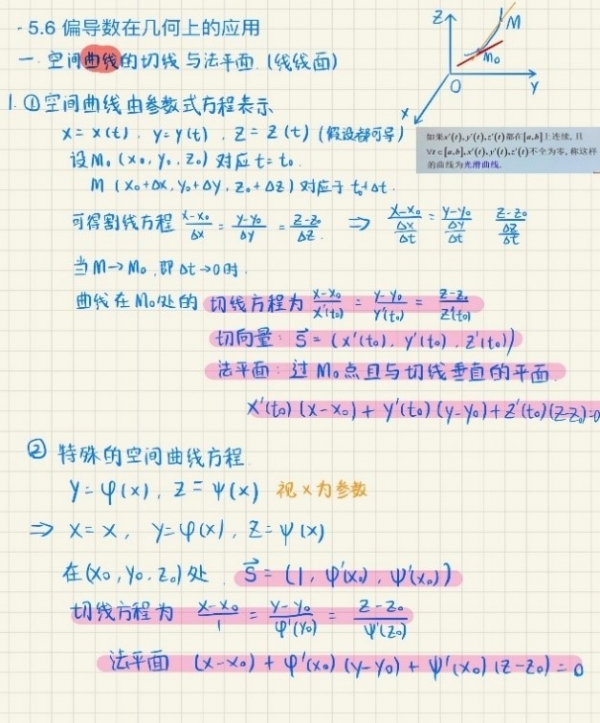 - 5.6 偏导数在几何上的应用
一. 空间曲线的切线与法平面. (线线面)
Z
M
M₀
O
Y
X
1. ① 空间曲线由参数式方程表示
x = x(t), y = y(t), z = z(t) (假设都可导)
如果x'(t)、y'(t)、z'(t)都在[a,b]上连续, 且
∀t∈[a,b], x'(t)、y'(t)、z'(t)不全为零, 称这样
的曲线为光滑曲线.
设M₀(x₀, y₀, z₀) 对应 t = t₀.
M (x₀+Δx, y₀+Δy, z₀+Δz) 对应于 t₀+Δt.
可得割线方程 (x-x₀)/Δx = (y-y₀)/Δy = (z-z₀)/Δz. ⇒ (x-x₀)/(Δx/Δt) = (y-y₀)/(Δy/Δt) (z-z₀)/(Δz/Δt)
当M→M₀, 即 Δt→0时.
曲线在M₀处的 切线方程为 (x-x₀)/x'(t₀) = (y-y₀)/y'(t₀) = (z-z₀)/z'(t₀)
切向量: s⃗ = (x'(t₀), y'(t₀), z'(t₀))
法平面: 过M₀点且与切线垂直的平面.
x'(t₀)(x-x₀) + y'(t₀)(y-y₀) + z'(t₀)(z-z₀)=0
② 特殊的空间曲线方程.
y = φ(x), z = ψ(x) 视x为参数
⇒ x = x, y = φ(x), z = ψ(x)
在(x₀, y₀, z₀)处. s⃗ = (1, φ'(x₀), ψ'(x₀))
切线方程为 (x-x₀)/1 = (y-y₀)/φ'(y₀) = (z-z₀)/ψ'(z₀)
法平面 (x-x₀) + φ'(x₀)(y-y₀) + ψ'(x₀)(z-z₀) = 0